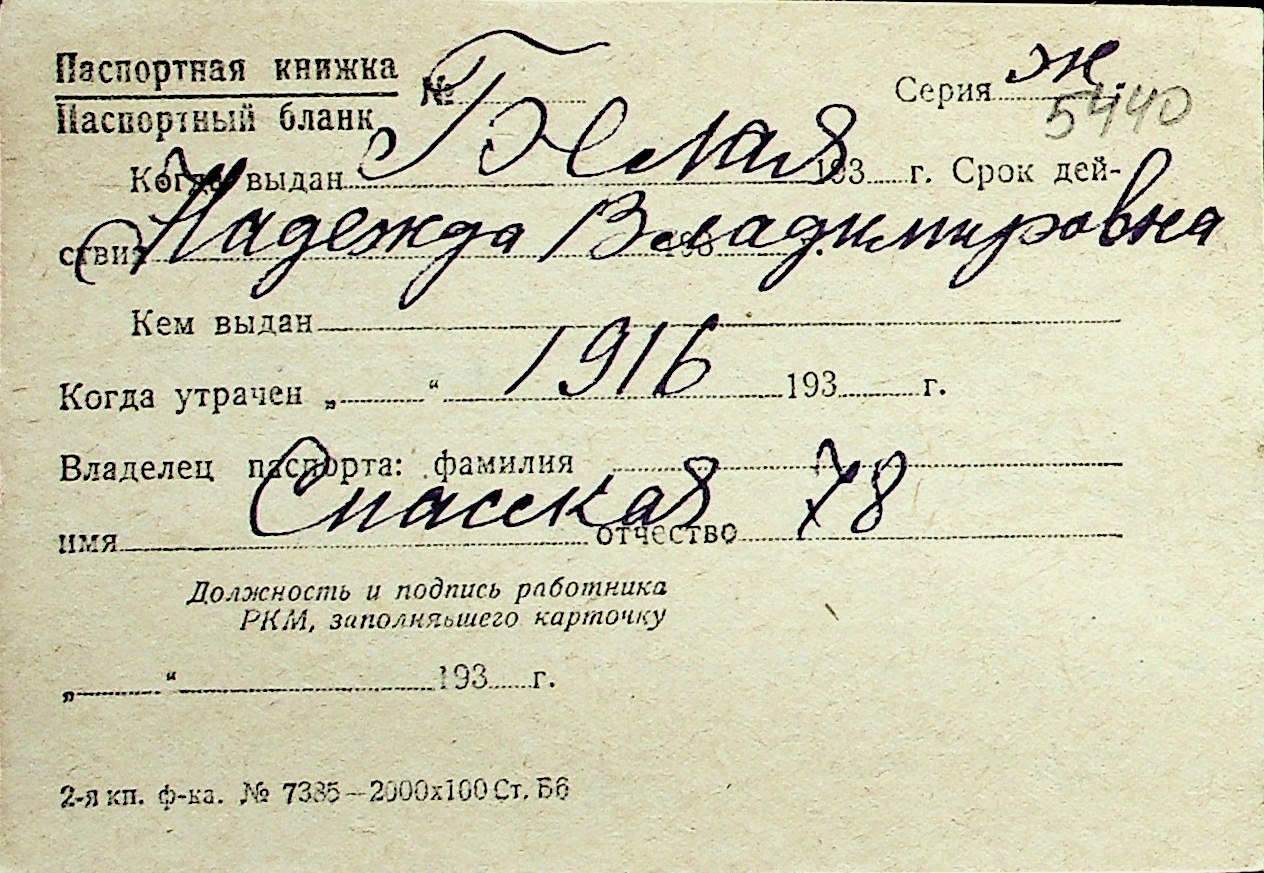 Паспортная книжка
№ Серия ж
Паспортный бланк 5440
Белая
Когда выдан 193 г. Срок дей-
Надежда Владимировна
ствия 193 г.
Кем выдан
1916
Когда утрачен „ “ 193 г.
Владелец паспорта: фамилия
Спасская 78
имя отчество
Должность и подпись работника
РКМ, заполнявшего карточку
„ “ 193 г.
2-я кп. ф-ка. № 7385—2000х100 Ст. Б6